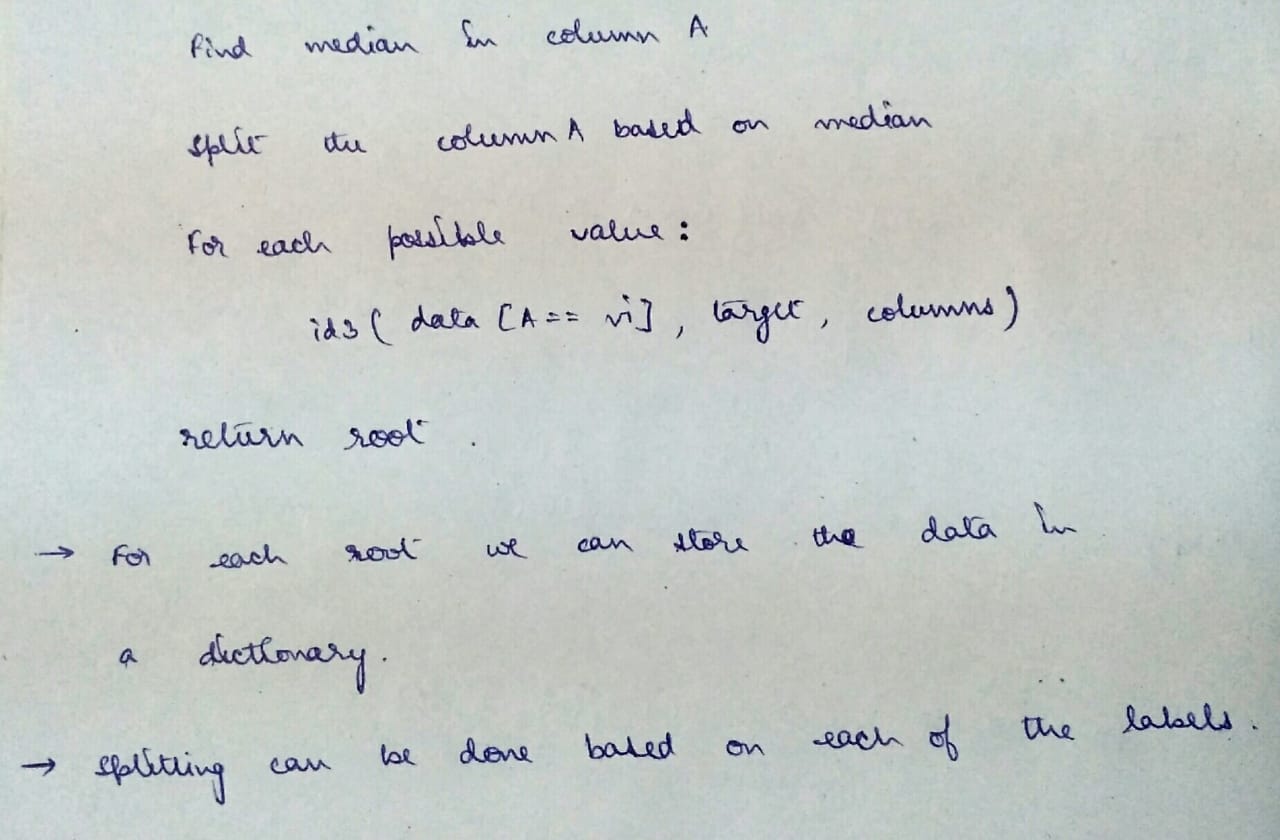 Find median in column A
split the column A based on median
For each possible value :
id3 ( data [A == vi] , target , columns )
return root .
→ For each root we can store the data in
a dictionary.
→ splitting can be done based on each of the labels .